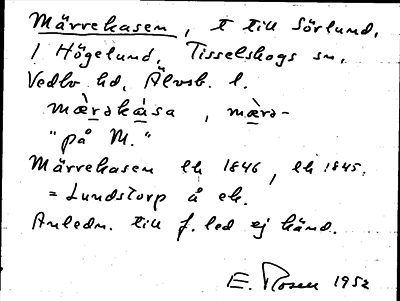 Märrekasen, t till Sörlund,
1 Högelund, Tisselskogs sn,
Vedbo hd, Älvsb. l.
mæ̀rəkása, mæ̀rə-
"på M."
Märrekasen lk 1846, lk 1845.
= Lundstorp å ek.
Anledn. till f. led ej känd.
E. Rosen 1952